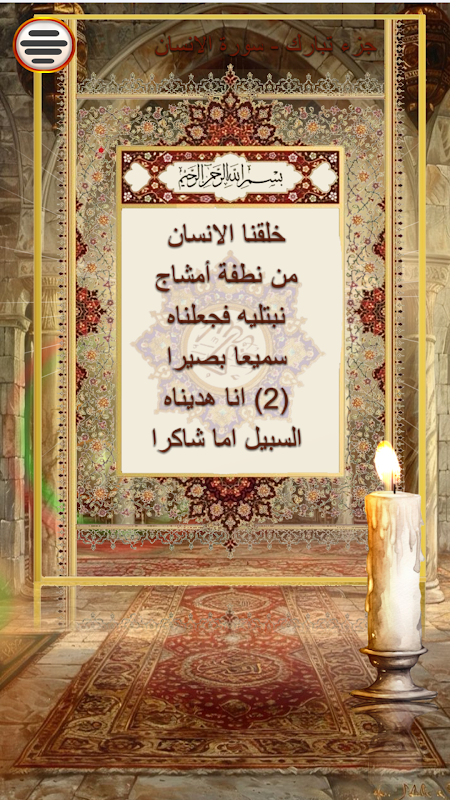 جزء تبارك - سورة الإنسان
بسم الله الرحمن الرحيم
خلقنا الانسان
من نطفة أمشاج
نبتليه فجعلناه
سميعا بصيرا
(2) انا هديناه
السبيل اما شاكرا